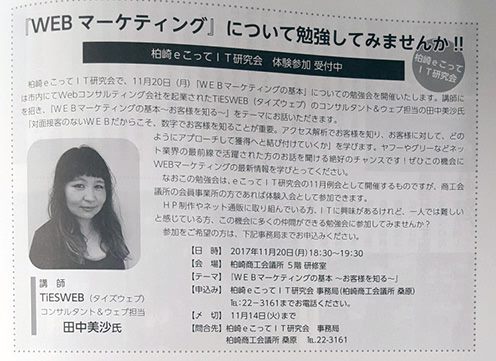 『WEB マーケティング』について勉強してみませんか!!
柏崎ｅこってＩＴ研究会　体験参加 受付中
柏崎ｅこって
ＩＴ研究会
柏崎ｅこってＩＴ研究会で、11月20日（月）「ＷＥＢマーケティングの基本」についての勉強会を開催いたします。講師に
は市内にてWebコンサルティング会社を起業されたTiESWEB（タイズウェブ）のコンサルタント＆ウェブ担当の田中美沙氏
を招き、「ＷＥＢマーケティングの基本～お客様を知る～」をテーマにお話いただきます。
「対面接客のないＷＥＢだからこそ、数字でお客様を知ることが重要。アクセス解析でお客様を知り、お客様に対して、どの
ようにアプローチして獲得へと結び付けていくか」を学びます。ヤフーやグリーなどネッ
ト業界の最前線で活躍された方のお話を聞ける絶好のチャンスです！ぜひこの機会に
WEBマーケティングの最新情報を学びとってください。
なおこの勉強会は、ｅこってＩＴ研究会の11月例会として開催するものですが、商工会
議所の会員事業所の方であれば体験入会として参加できます。
ＨＰ制作やネット通販に取り組んでいる方、ＩＴに興味があるけれど、一人では難しい
と感じている方、この機会に多くの仲間ができる勉強会に参加してみませんか？
参加をご希望の方は、下記事務局までお申込みください。
【日　時】　2017年11月20日(月)18:30～19:30
【会　場】　柏崎商工会議所 ５階 研修室
【テーマ】　「ＷＥＢマーケティングの基本 ～お客様を知る～」
【申込み】　柏崎ｅこってＩＴ研究会 事務局(柏崎商工会議所 桑原)
℡22－3161までお電話ください。
【〆　切】　11月14日(火)まで
【問合先】　柏崎ｅこってＩＴ研究会　事務局
柏崎商工会議所　桑原　℡.22-3161
講　師
TiESWEB（タイズウェブ）
コンサルタント＆ウェブ担当
田中美沙氏